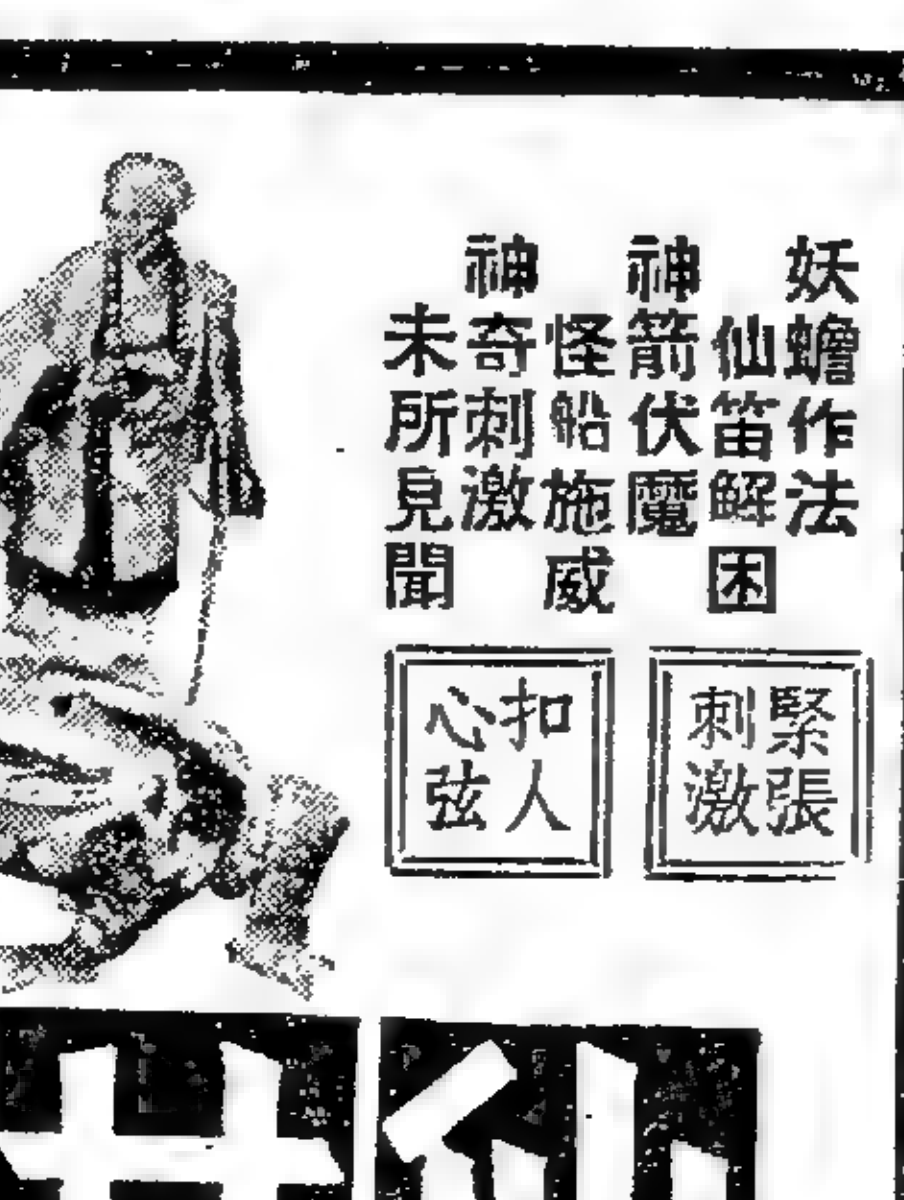 妖蟾作法
仙笛解困
神箭伏魔
怪船施威
神奇刺激
未所見聞
緊張
刺激
扣人
心弦
仙